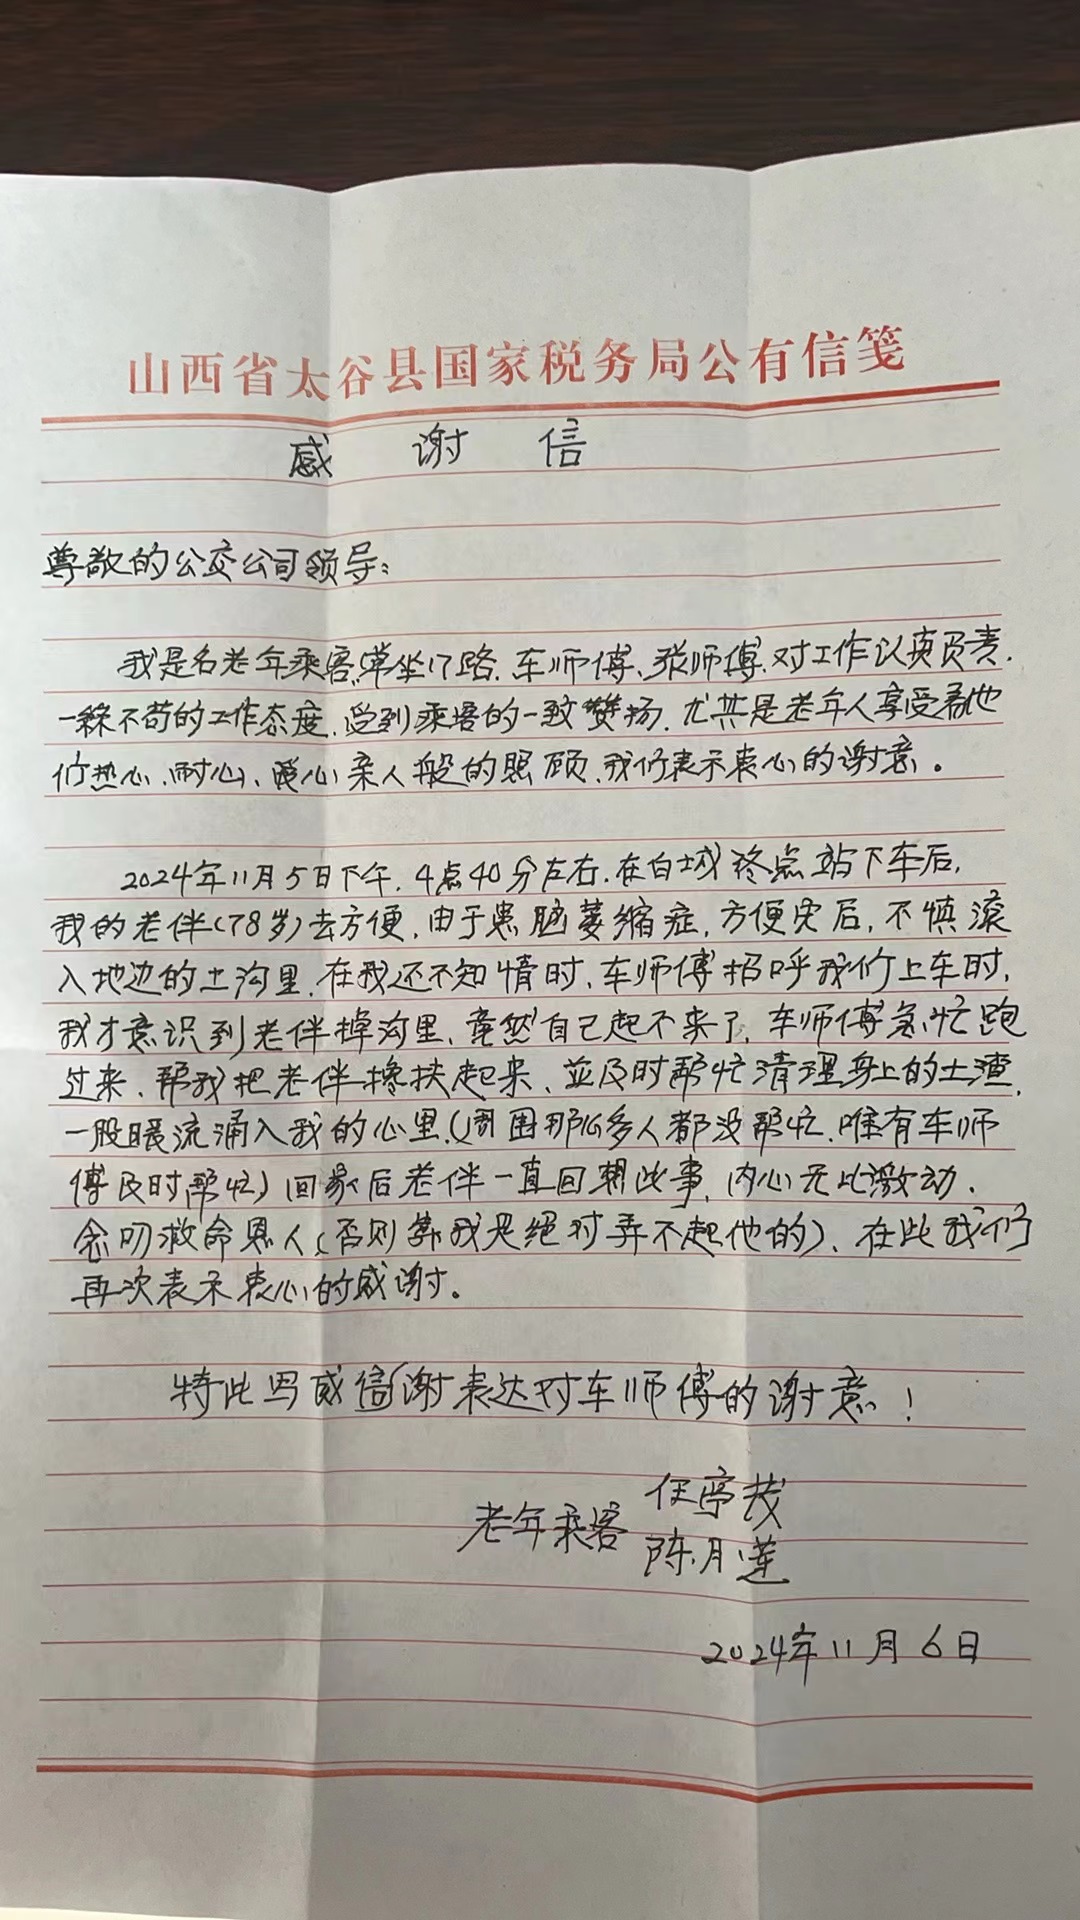 山西省太谷县国家税务局公有信笺
感 谢 信
尊敬的公交公司领导：
我是名老年乘客,常坐17路.车师傅、张师傅.对工作认真负责.
一丝不苟的工作态度.受到乘客的一致赞扬.尤其是老年人享受着他
们热心、耐心、暖心亲人般的照顾、我们表示衷心的谢意。
2024年11月5日下午.4点40分左右.在白城终点站下车后,
我的老伴(78岁)去方便,由于患脑萎缩症,方便完后,不慎滚
入地边的土沟里.在我还不知情时、车师傅招呼我们上车时,
我才意识到老伴掉沟里、竟然自己起不来了.车师傅急忙跑
过来、帮我把老伴搀扶起来、並及时帮忙清理身上的土渣,
一股暖流涌入我的心里.(周围那么多人都没帮忙.唯有车师
傅及时帮忙)回家后老伴一直回朝此事,内心无比激动.
念叨救命恩人(否则靠我是绝对弄不起他的)、在此我们
再次表示衷心的感谢。
特此写感信谢表达对车师傅的谢意！
老年乘客
任序茂
陈月莲
2024年11月6日